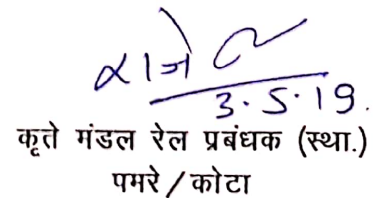 राजे
3.5.19.
कृते मंडल रेल प्रबंधक (स्था.)
पमरे / कोटा